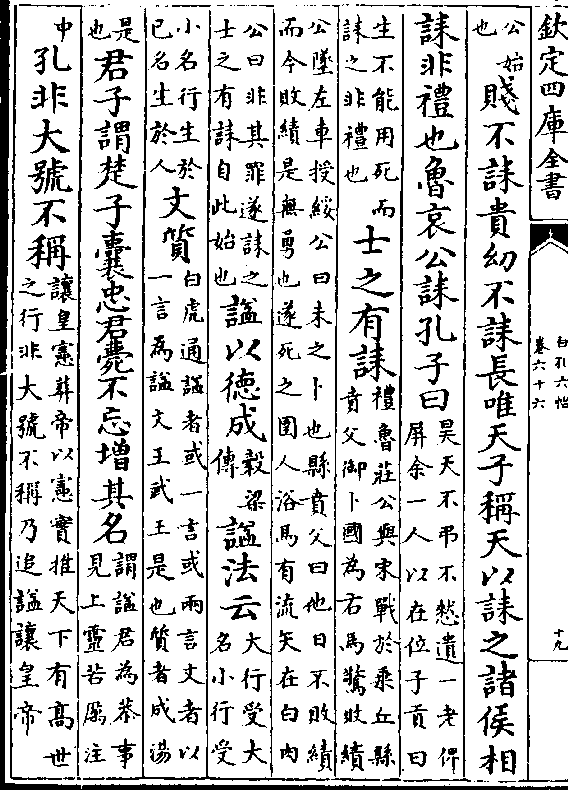 欽定四庫全書
白孔六帖
卷六十六
十九
公始
也
賤不誄貴幼不誄長唯天子稱天以誄之諸侯相
誄非禮也魯哀公誄孔子曰
昊天不弔不憖遺一老俾
屏余一人以在位子貢曰
生不能用死而
誄之非禮也
士之有誄
禮魯莊公與宋戰於乘丘縣
賁父御卜國為右馬驚敗績
公墜左車授綏公曰未之卜也縣賁父曰他日不敗績
而今敗績是無勇也遂死之圉人浴馬有流矢在白肉
公曰非其罪遂誄之
士之有誄自此始也
諡以德成
榖梁
傳
諡法云
大行受大
名小行受
小名行生於
已名生於人
文質
白虎通諡者或一言或兩言文者以
一言為諡文王武王是也質者成湯
是
也
君子謂楚子囊忠君薨不忘增其名
謂諡君為恭事
見上靈若厲注
中
孔非大號不稱
讓皇憲薨帝以憲實推天下有高世
之行非大號不稱乃追諡讓皇帝